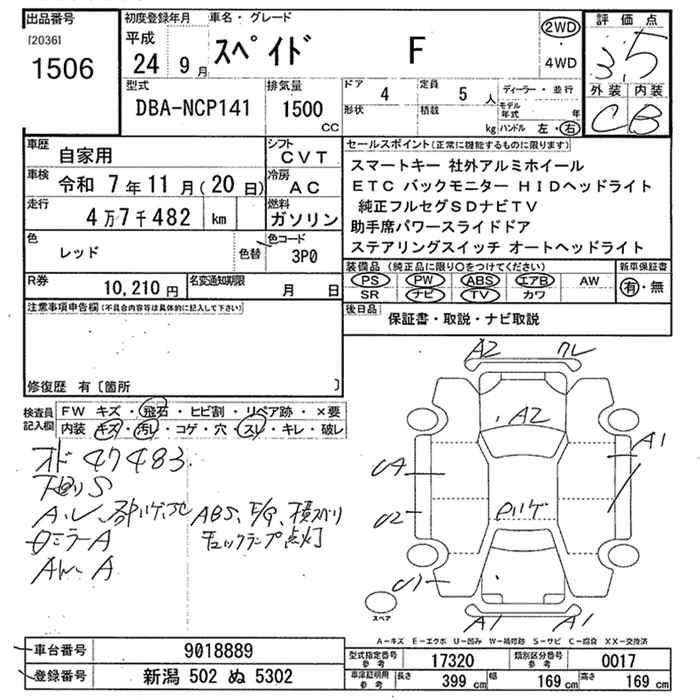 出品番号
[2036]
1506
初度登録年月
平成
24 9月
車名・グレード
スペイド F
2WD
・
4WD
評価点
3.5
外装 内装
C B
型式
DBA-NCP141
排気量
1500
CC
ドア
4
定員
5 人
形状
積載
kg
ディーラー・並行
モデル年式
年
ハンドル 左・右
車歴
自家用
シフト
CVT
車検
令和 7年 11月(20日)
冷房
AC
走行
4万7千482 km
燃料
ガソリン
色
レッド
色替
色コード
3P0
セールスポイント(正常に機能するものに限ります)
スマートキー 社外アルミホイール
ETC バックモニター HIDヘッドライト
純正フルセグSDナビTV
助手席パワースライドドア
ステアリングスイッチ オートヘッドライト
R券
10,210 円
名変通知期限
月 日
装備品(純正品に限り○をつけてください)
新車保証書
PS PW ABS エアB AW
SR ナビ TV カワ
有・無
注意事項申告欄(不具合内容等は具体的に記入して下さい)
後日品
保証書・取説・ナビ取説
修復歴 有〔箇所 〕
検査員
記入欄
FW キズ・飛石・ヒビ割・リペア跡・×要
内装 キズ・汚レ・コゲ・穴・スレ・キレ・破レ
オド 47483
下回りS
A・U
ABS、E/G、横スベリ
チェックランプ点灯
ミラーA
AW A
A2
クレ
A2
A1
U4
U2
U1
A1
A1
スペア
A-キズ E-エクボ U-凹み W-補修跡 S-サビ C-腐食 XX-交換済
車台番号
9018889
登録番号
新潟 502 ぬ 5302
型式指定番号
参考
17320
類別区分番号
参考
0017
車庫証明用
参考
長さ
399 cm
幅
169 cm
高さ
169 cm